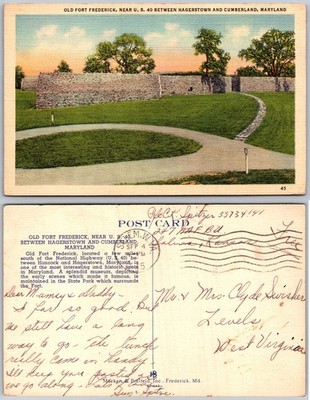 OLD FORT FREDERICK, NEAR U. S. 40 BETWEEN HAGERSTOWN AND CUMBERLAND, MARYLAND
45
POST CARD
OLD FORT FREDERICK, NEAR U. S. 40
BETWEEN HAGERSTOWN AND CUMBERLAND
MARYLAND
Old Fort Frederick, located a few miles
south of the National Highway (U. S. 40) between
Hancock and Hagerstown, Maryland, is
one of the most interesting and historic spots
in Maryland. A splendid museum, depicting
the early scenes which made it famous, is
maintained in the State Park which surrounds
the Fort.
SEP 4
Salina, Kansas
Dear Mamey & Daddy -
So far so good. But
we still have a long
way to go - the lunch
really came in handy
I'll keep you posted as
we go along -
Mr & Mrs Clyde
Levels,
West Virginia
18
Frederick, Md.